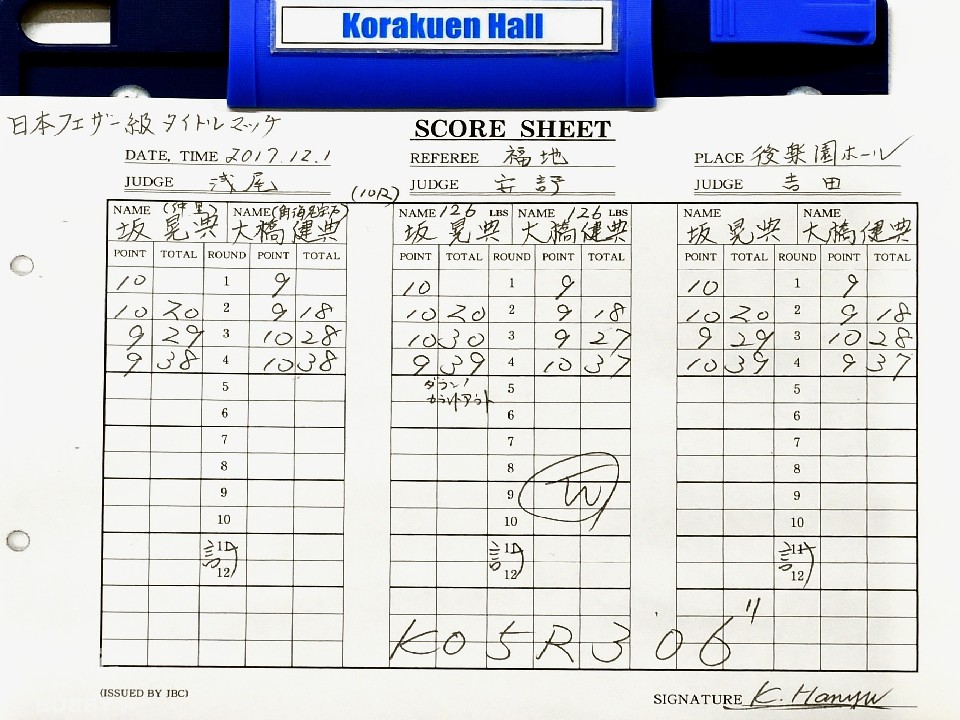 Korakuen Hall
日本フェザー級タイトルマッチ
SCORE SHEET
DATE, TIME 2017.12.1 REFEREE 福地 PLACE 後楽園ホール
JUDGE 浅尾 JUDGE 安部 JUDGE 吉田
(10R)
NAME (仲里) NAME NAME 126 LBS NAME 126 LBS NAME NAME
坂晃典 大橋健典 坂晃典 大橋健典 坂晃典 大橋健典
POINT TOTAL ROUND POINT TOTAL POINT TOTAL ROUND POINT TOTAL POINT TOTAL ROUND POINT TOTAL
10 1 9 10 1 9 10 1 9
10 20 2 9 18 10 20 2 9 18 10 20 2 9 18
9 29 3 10 28 10 30 3 9 27 9 29 3 10 28
9 38 4 10 38 9 39 4 10 37 10 39 4 9 37
5 ダウン! 5 5
カウントアウト
6 6 6
7 7 7
8 8 8
9 9 9
10 10 10
計 11 計 11 計 11
12 12 12
KO 5R 3'06"
(ISSUED BY JBC) SIGNATURE K. Hanyu